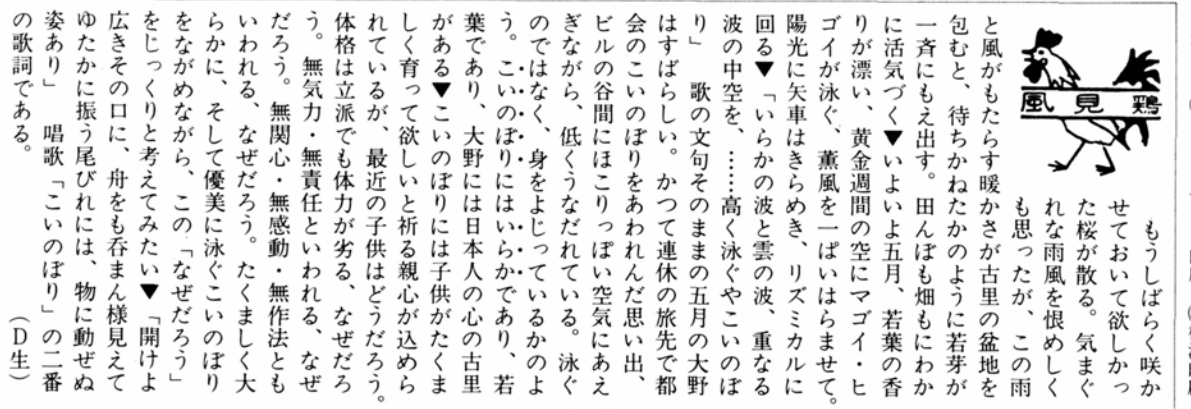 風見鶏
もうしばらく咲か
せておいて欲しかっ
た桜が散る。気まぐ
れな雨風を恨めしく
も思ったが、この雨
と風がもたらす暖かさが古里の盆地を
包むと、待ちかねたかのように若芽が
一斉にもえ出す。田んぼも畑もにわか
に活気づく▼いよいよ五月、若葉の香
りが漂い、黄金週間の空にマゴイ・ヒ
ゴイが泳ぐ、薫風を一ぱいはらませて。
陽光に矢車はきらめき、リズミカルに
回る▼「いらかの波と雲の波、重なる
波の中空を、……高く泳ぐやこいのぼ
り」　歌の文句そのままの五月の大野
はすばらしい。かつて連休の旅先で都
会のこいのぼりをあわれんだ思い出、
ビルの谷間にほこりっぽい空気にあえ
ぎながら、低くうなだれている。泳ぐ
のではなく、身をよじっているかのよ
う。こいのぼりにはいらかであり、若
葉であり、大野には日本人の心の古里
がある▼こいのぼりには子供がたくま
しく育って欲しいと祈る親心が込めら
れているが、最近の子供はどうだろう。
体格は立派でも体力が劣る　なぜだろ
う。無気力・無責任といわれる、なぜ
だろう。無関心・無感動・無作法とも
いわれる、なぜだろう。たくましく大
らかに、そして優美に泳ぐこいのぼり
をながめながら、この「なぜだろう」
をじっくりと考えてみたい▼「開けよ
広きその口に、舟をも呑まん様見えて
ゆたかに振う尾びれには、物に動ぜぬ
姿あり」　唱歌「こいのぼり」の二番
の歌詞である。　　　　　（D生）